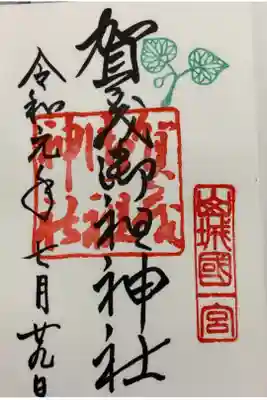 山城國一宮
賀茂御祖神社
賀茂
御祖
神社
令和元年七月廿九日